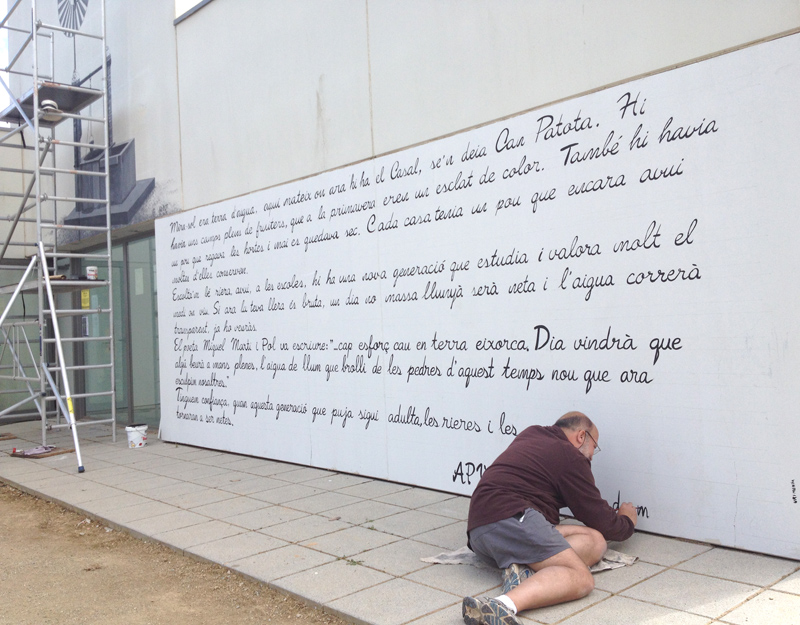 Mira sol era terra d'aigua, aquí mateix on ara hi ha el Casal, se'n deia Can Patota. Hi
havia uns camps plens de fruiters, que a la primavera eren un esclat de color. També hi havia
un pou que regava les hortes i mai es quedava sec. Cada casa tenia un pou que encara avui
moltes d'elles conserven.
Escolta'm bé riera, avui, a les escoles, hi ha una nova generació que estudia i valora molt el
medi on viu. Si ara la teva llera és bruta, un dia no massa llunyà serà neta i l'aigua correrà
transparent, ja ho veuràs.
El poeta Miquel Martí i Pol va escriure: "...cap esforç cau en terra eixorca. Dia vindrà que
algú beurà a mans plenes, l'aigua de llum que brolli de les pedres d'aquest temps nou que ara
esculpim nosaltres."
Tinguem confiança, quan aquesta generació que puja sigui adulta, les rieres i les
tornaran a ser netes.